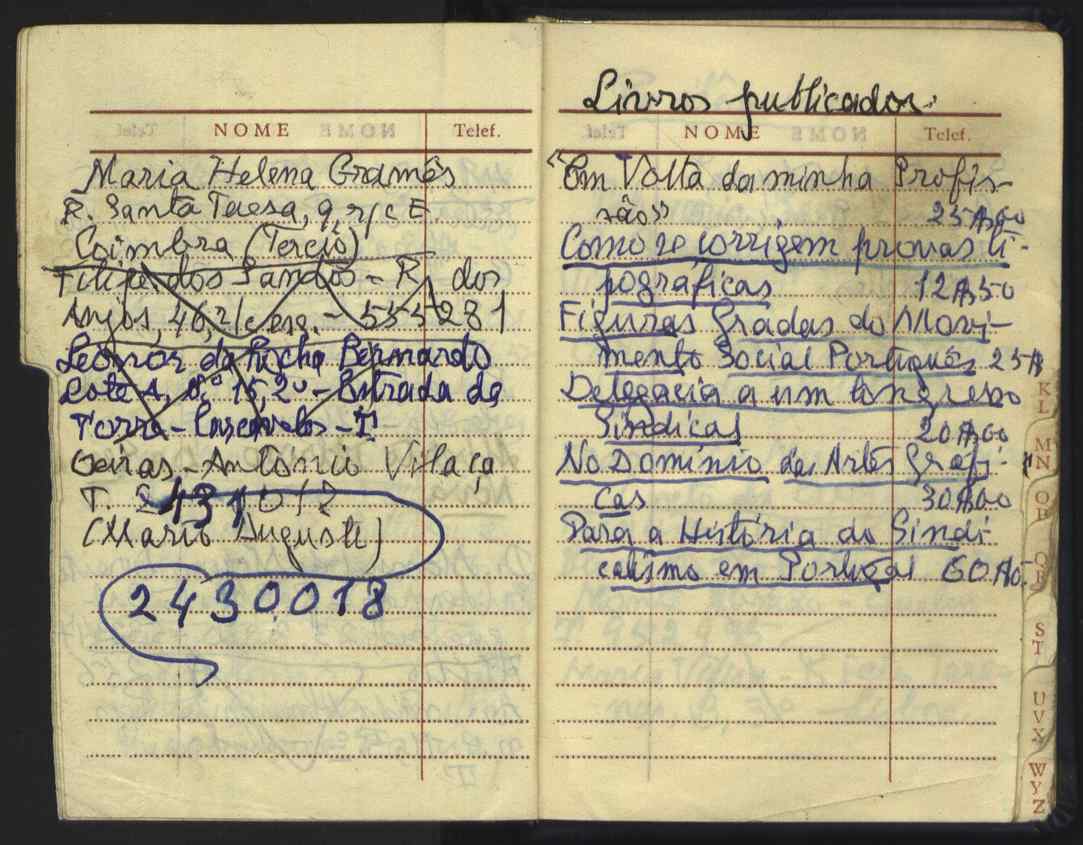 NOME Telef.
Maria Helena Gramês
R. Santa Teresa, 9, r/c E.
Coimbra (Tercio)
Filipe dos Santos - R. dos
Anjos, 46, 2/c esq. - 555281
Leonor da Rocha Bernardo
Lote A, nº 15, 2º - Estrada da
Torre - Carcavelos - T
Oeiras - António Vilaça
T.
(Mário Augusto)
2430018
Livros publicados.
NOME Telef.
"Em Volta da minha Profis-
são" 25$00
Como se corrigem provas ti-
pográficas 12$50
Figuras Gradas do Movi-
mento Social Português 25$
Delegacia a um Congresso
Sindical 20$00
No Domínio das Artes Gráfi-
cas 30$00
Para a História do Sindi-
calismo em Portugal 60$0
KL
MN
OP
QR
ST
UVX
WYZ